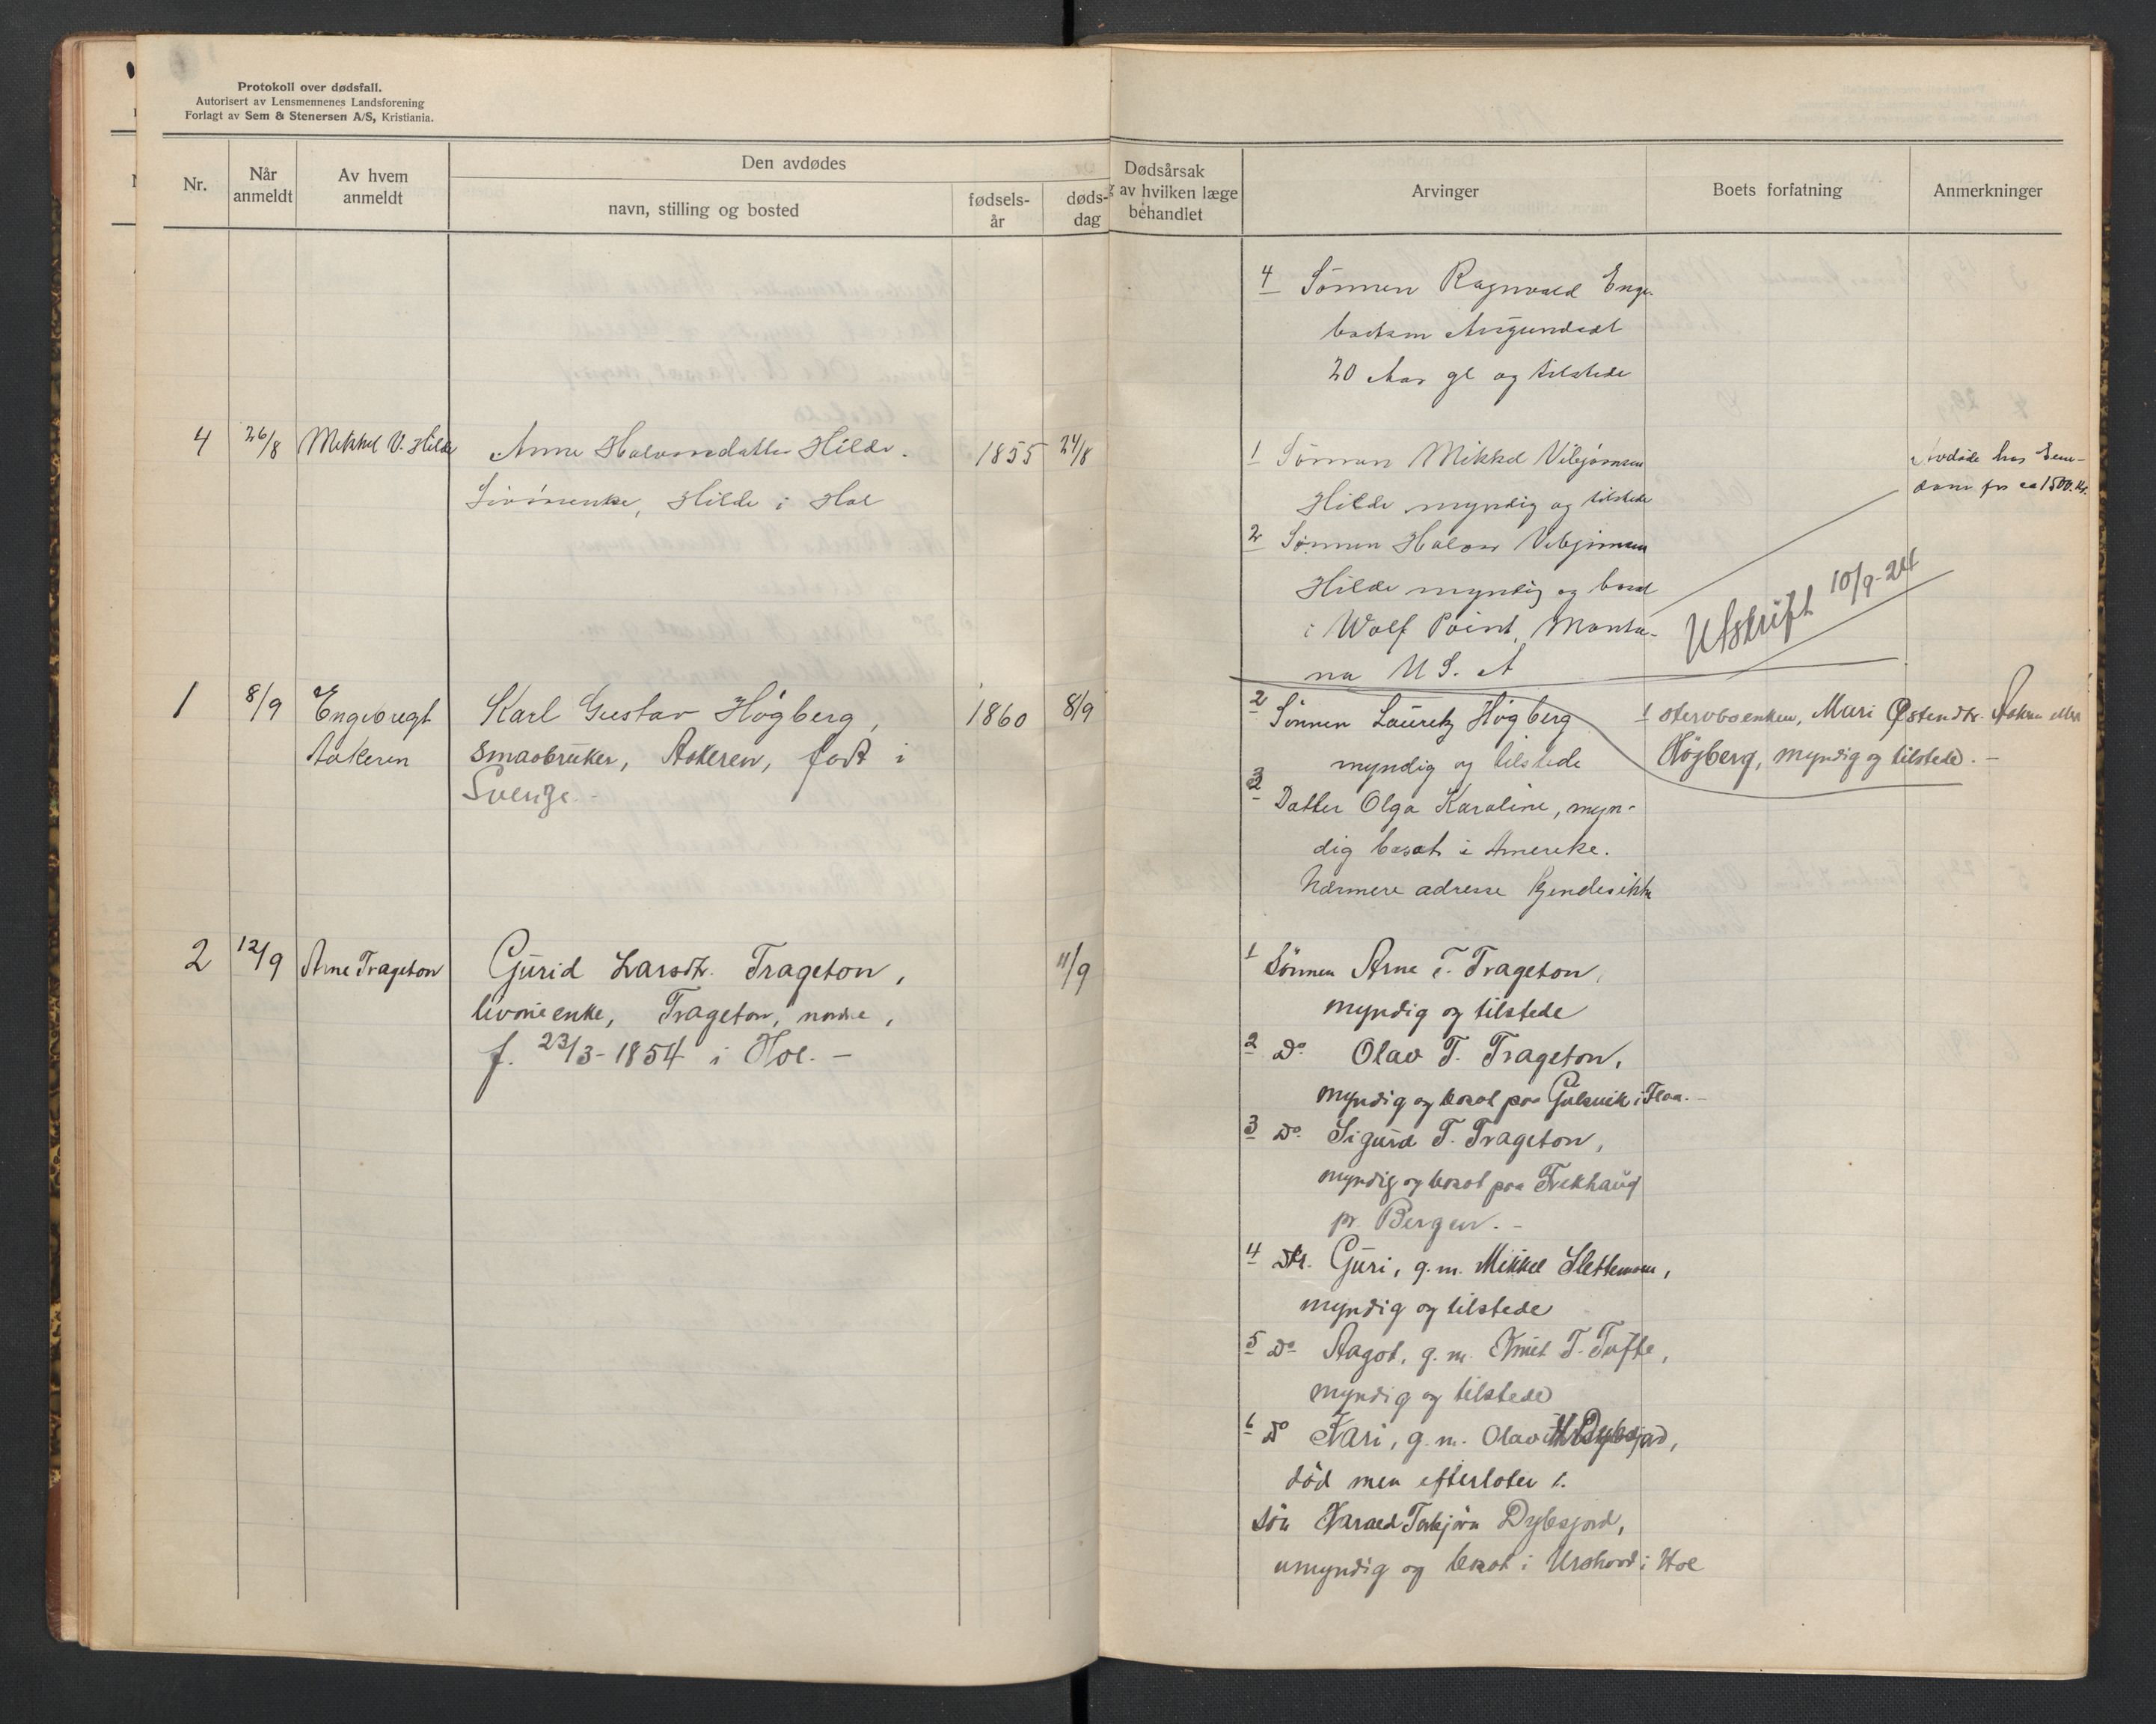 Protokoll over dødsfall.
Autorisert av Lensmennenes Landsforening
Forlagt av Sem & Stenersen A/S, Kristiania.
Nr.
Når anmeldt
Av hvem anmeldt
Den avdødes
navn, stilling og bosted
fødsels-år
døds-dag
Dødsårsak
av hvilken læge
behandlet
Arvinger
Boets forfatning
Anmerkninger
4 Sønnen Ragnvald Enge-
20 Aar gl og tilstede
4 26/8 Mikkel V. Hilde Anne Halvorsdatter Hilde. 1855 24/8
Hilde i Hol
1 Sønnen Mikkel Vebjørnsen
Hilde myndig og tilstede
2 Sønnen Halvor Vebjørnsen
Hilde myndig og bosat
i Wolf Point, Monta-
na U.S.A
Avdøde har Eien-
dom for ca 1500 Kr.
Utskrift 10/9-24
1 8/9 Engebregt Karl Gustav Høgberg, 1860 8/9
Aakeren smaabruker, Aakeren, født i
Sverige.-
2 Sønnen Lauretz Høgberg
myndig og tilstede
3 Datter Olga Karoline, myn-
dig bosat i Amerika.
Nærmere adresse kjendes ikke
1 Stervboenken, Mari Østensdtr. Aakeren eller
Høgberg, myndig og tilstede.-
2 12/9 Arne Trageton Gurid Larsdtr. Trageton, 11/9
livøreenke, Trageton, nordre,
f. 23/3-1854 i Hol.-
1 Sønnen Arne T. Trageton,
myndig og tilstede
2 Do Olav T. Trageton,
myndig og bosat paa Gulsvik i Flaa.-
3 Do Sigurd T. Trageton,
myndig og bosat paa Frekhaug
pr. Bergen.-
4 Dtr. Guri, g.m. Mikkel Slettemoen,
myndig og tilstede
5 Do Aagot, g.m. Knut T. Tufte,
myndig og tilstede
6 Do Kari, g.m. Olav
død men efterlater 1.
søn Harald Torbjørn Dybsjord,
umyndig og bosat i Ustaoset i Hol